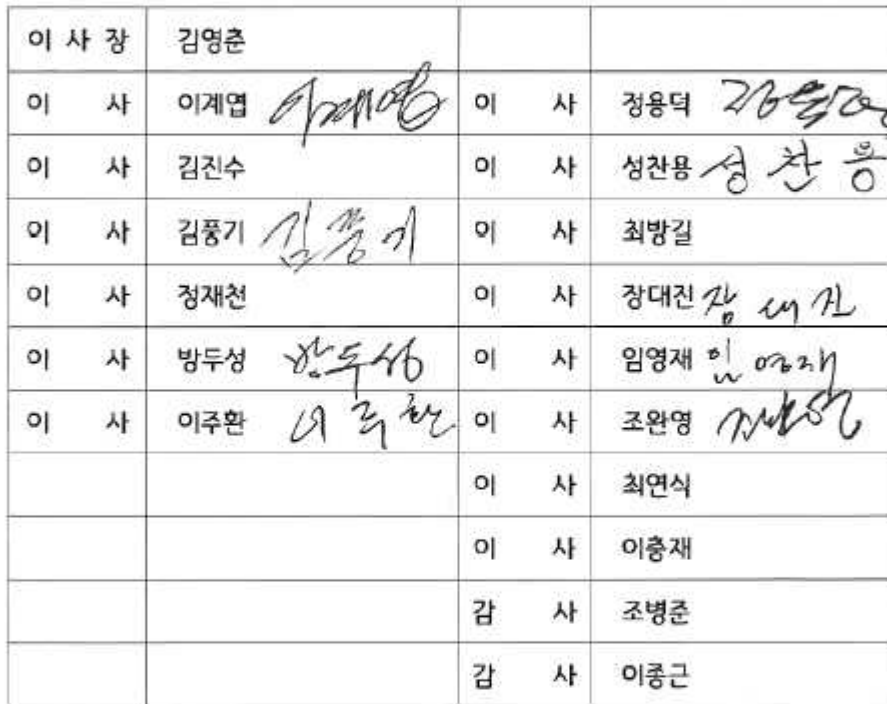 이 사 장 김영춘
이 사 이계엽 이계엽 이 사 정용덕
이 사 김진수 이 사 성찬용 성찬용
이 사 김풍기 김풍기 이 사 최방길
이 사 정재천 이 사 장대진 장대진
이 사 방두성 방두성 이 사 임영재 임영재
이 사 이주환 이주환 이 사 조완영
이 사 최연식
이 사 이충재
감 사 조병준
감 사 이종근